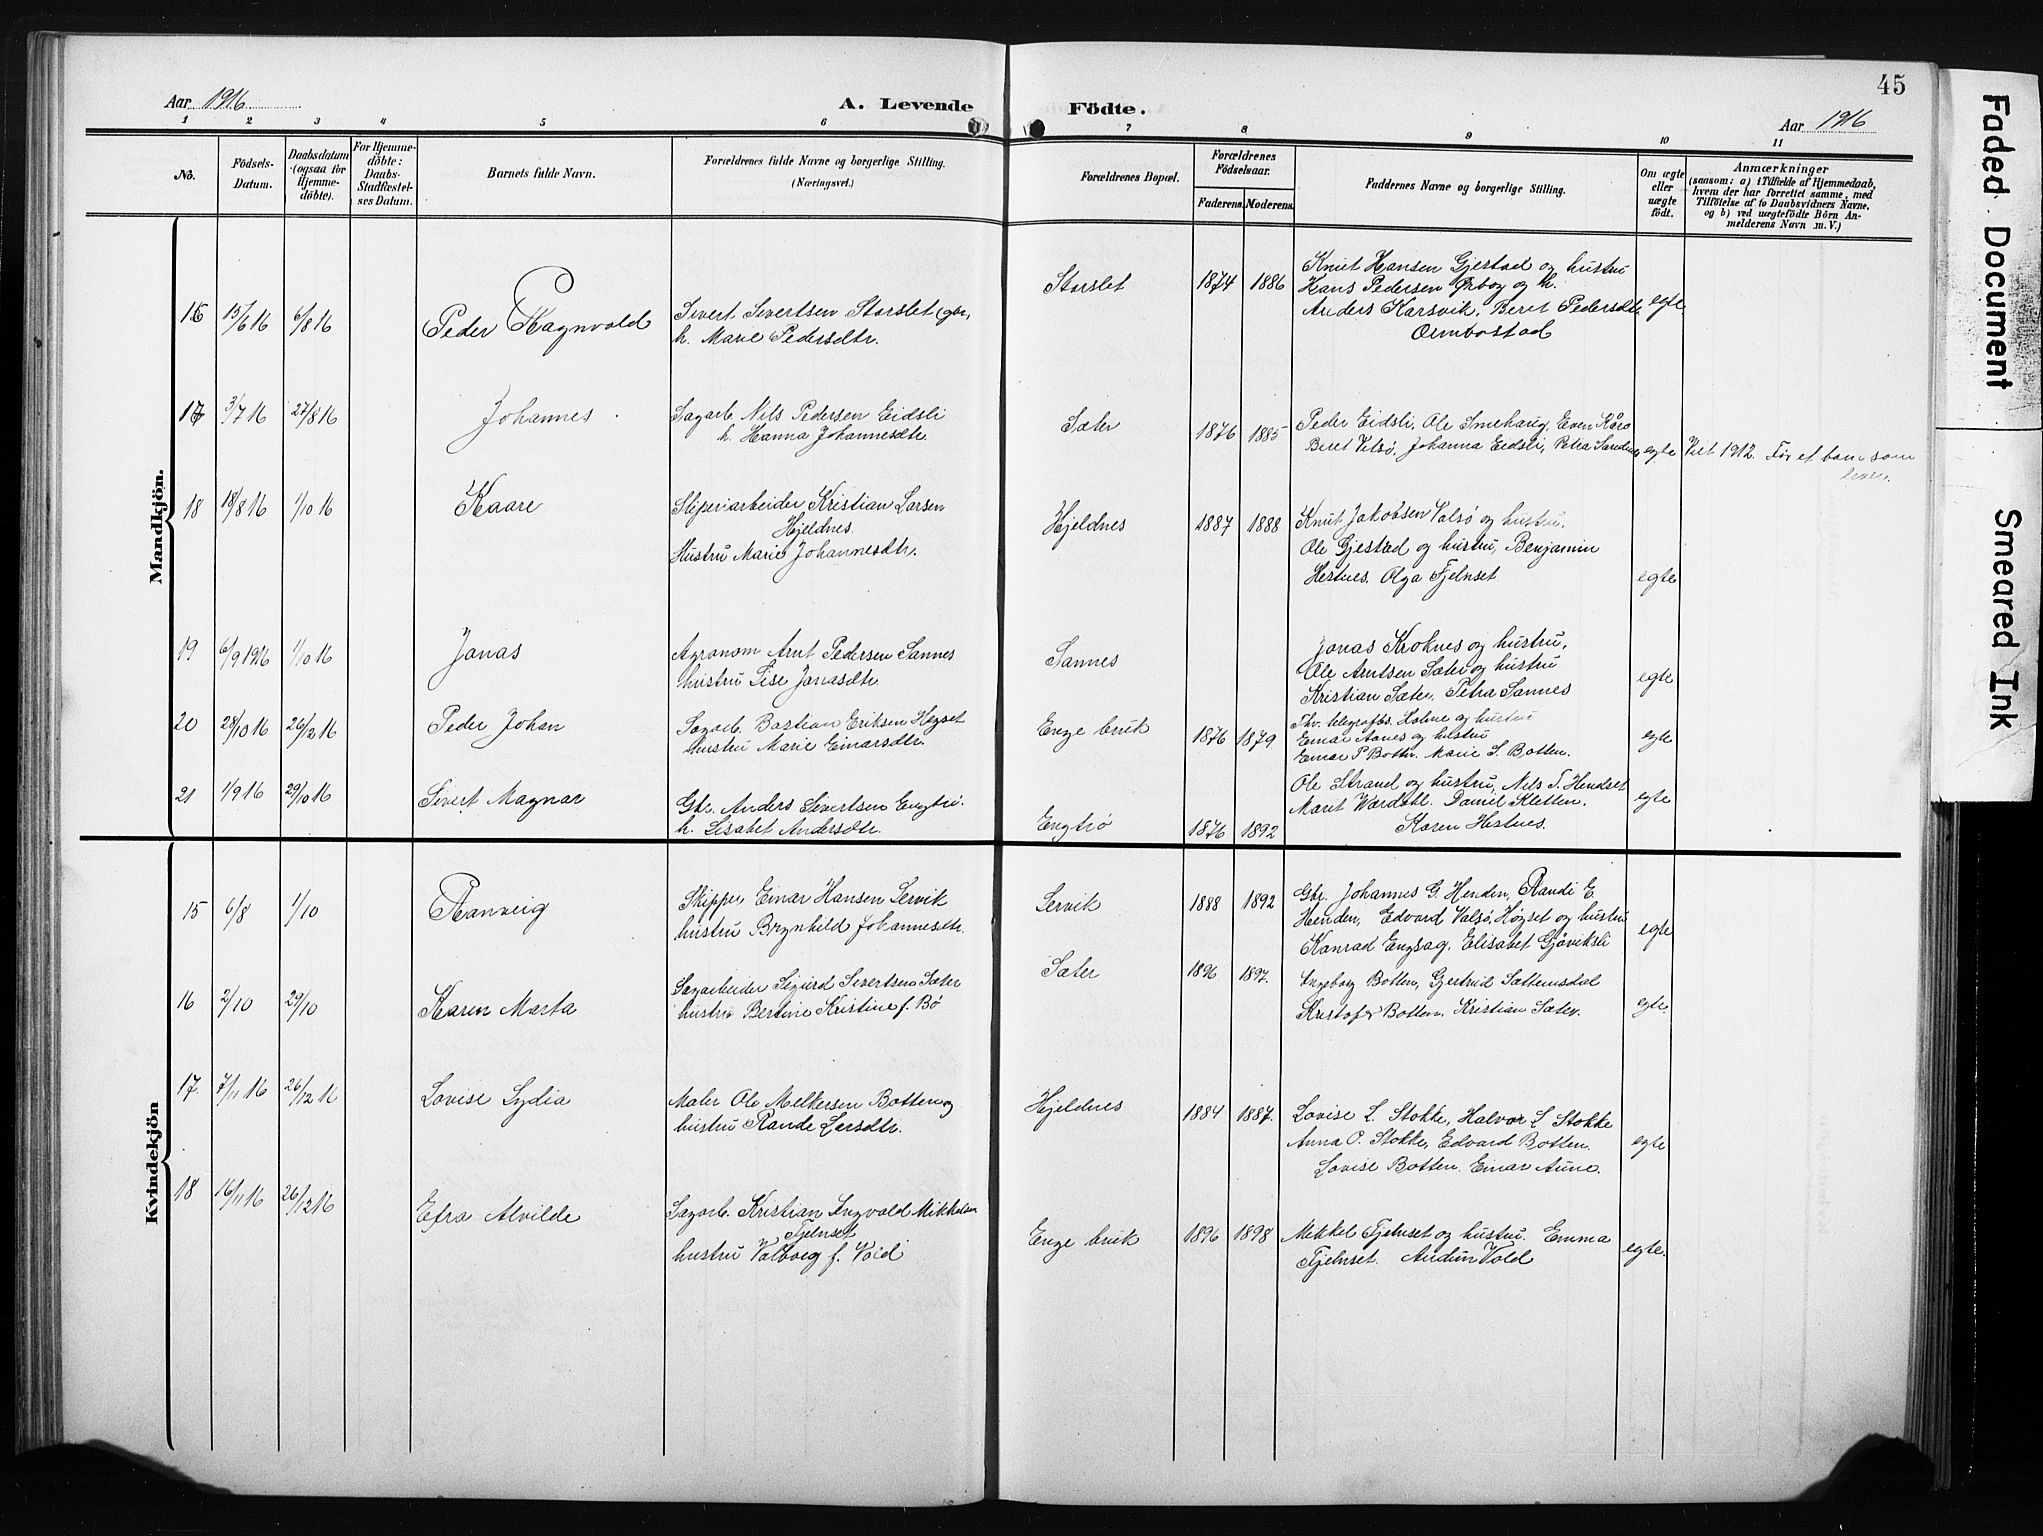 45
Aar 1916
A. Levende Födte.
Aar 1916
1 2 3 4 5 6 7 8 9 10 11
No.
Födsels-Datum.
Daabsdatum (ogsaa for Hjemme-döbte).
For Hjemme-döbte: Daabs-Stadfæstel-ses Datum.
Barnets fulde Navn.
Forældrenes fulde Navne og borgerlige Stilling.
(Næringsvei.)
Forældrenes Bopæl.
Forældrenes Födselsaar.
Faderens. Moderens.
Faddernes Navne og borgerlige Stilling.
Om ægte eller uægte födt.
Anmærkninger
(saasom: a) i Tilfælde af Hjemmedaab,
hvem der har forrettet samme, med
Tilföielse af to Daabsvidners Navne,
og b) ved uægtefödte Börn An-
melderens Navn m. V.)
Mandkjön.
16 15/6 16 6/8 16 Peder Ragnvald
Sivert Sivertsen Storslet (gbr,
h. Marie Pedersdtr.
Storslet 1874 1886
Knut Hansen Gjestad og hustru
Hans Pedersen Ørbog og h.
Anders Karsvik, Beret Pedersdtr
Ormbostad
egte
17 3/7 16 27/8 16 Johannes
Sagarb. Nils Pedersen Eidsli
h. Hanna Johannesdtr.
Sæter 1876 1885
Peder Eidsli, Ole Smehaug, Even Røro
Beret Valsø, Johanna Eidsli, Petra Sandnes
egte
Viet 1912. Før et barn som
lever.
18 18/8 16 1/10 16 Kaare
Sliperiarbeider Kristian Larsen
Hjeldnes
Hustru Marie Johannesdtr.
Hjeldnes 1887 1888
Knut Jakobsen Valsø og hustru.
Ole Gjestad og hustru, Benjamin
Hestnes. Olga Fjelnset.
egte
19 6/9 1916 1/10 16 Jonas
Agronom Arnt Pedersen Sannes
hustru Lise Jonasdtr.
Sannes
Jonas Kroknes og hustru,
Ole Arntsen Sæter og hustru
Kristian Sæter, Petra Sannes
egte
20 28/10 16 26/12 16 Peder Johan
Sagarb. Bastian Eriksen Hegset
hustru Marie Einarsdtr.
Enge bruk 1876 1879
Thv. telegrafbs. Holme og hustru
Einar Aanes og hustru
Einar P Botten. Marie S. Botten.
egte
21 1/9 16 29/10 16 Sivert Magnar
Gbr. Anders Sivertsen Engtrø.
h. Lisabet Andersdtr.
Engtrø 1876 1892
Ole Strand og hustru, Nils T. Hendset
Marit Wærdahl. Daniel Kletten.
Karen Hestnes.
egte
Kvindekjön
15 6/8 1/10 Ranveig
Skipper Einar Hansen Lervik
hustru Brynhild Johannesdtr.
Lervik 1888 1892
Gbr. Johannes G. Henden, Randi E.
Henden, Edvard Valsø, Høgset og hustru
Konrad Engsag, Elisabet Gjøviksli
egte
16 2/10 29/10 Karen Marta
Sagarbeider Sigurd Sivertsen Sæter
hustru Bertine Kristine f. Bø
Sæter 1896 1897.
Ingeborg Botten, Gjertrud Sættemsdal
Kristofer Botten, Kristian Sæter.
egte
17. 7/11 16 26/12 16 Lovise Lydia
Maler Ole Melkersen Botten og
hustru Rande Larsdtr.
Hjeldnes 1884 1887.
Lovise L. Stokke, Halvor L Stokke
Anna O. Stokke, Edvard Botten.
Lovise Botten. Einar Aune.
egte
18 16/11 16 26/12 16 Efra Alvilde
Sagarb. Kristian Ingvald Mikkelsen
Fjelnset
hustru Valborg f. Vold
Enge bruk 1896 1898
Mikkel Fjelnset og hustru. Emma
Fjelnset. Audun Vold
egte.
Faded Document
Smeared Ink